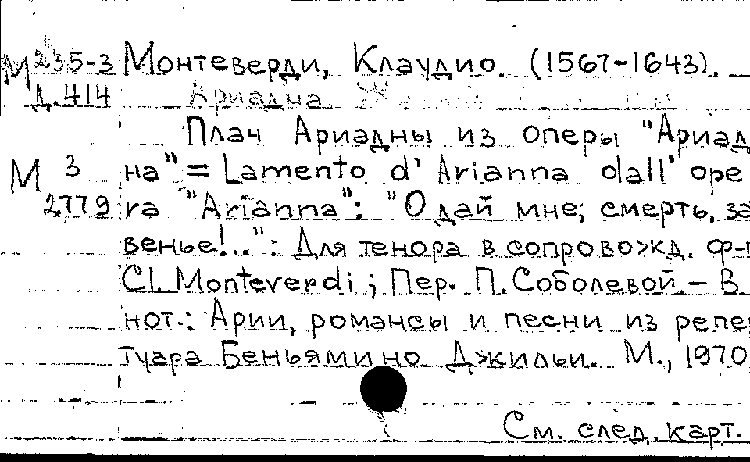 М 235-3 Монтеверди, Клаудио. (1567-1643).
д. 414 Ариадна
Плач Ариадны из оперы "Ариад
М 3 на" = Lamento d' Arianna dall' ope
2779 ra "Arianna": "О дай мне, смерть, за
венье!..": Для тенора в сопровожд. ф-п
Cl. Monteverdi; Пер. П. Соболевой. - В
нот.: Арии, романсы и песни из репер
туара Беньямино Джильи. М., 1970,
См. след. карт.